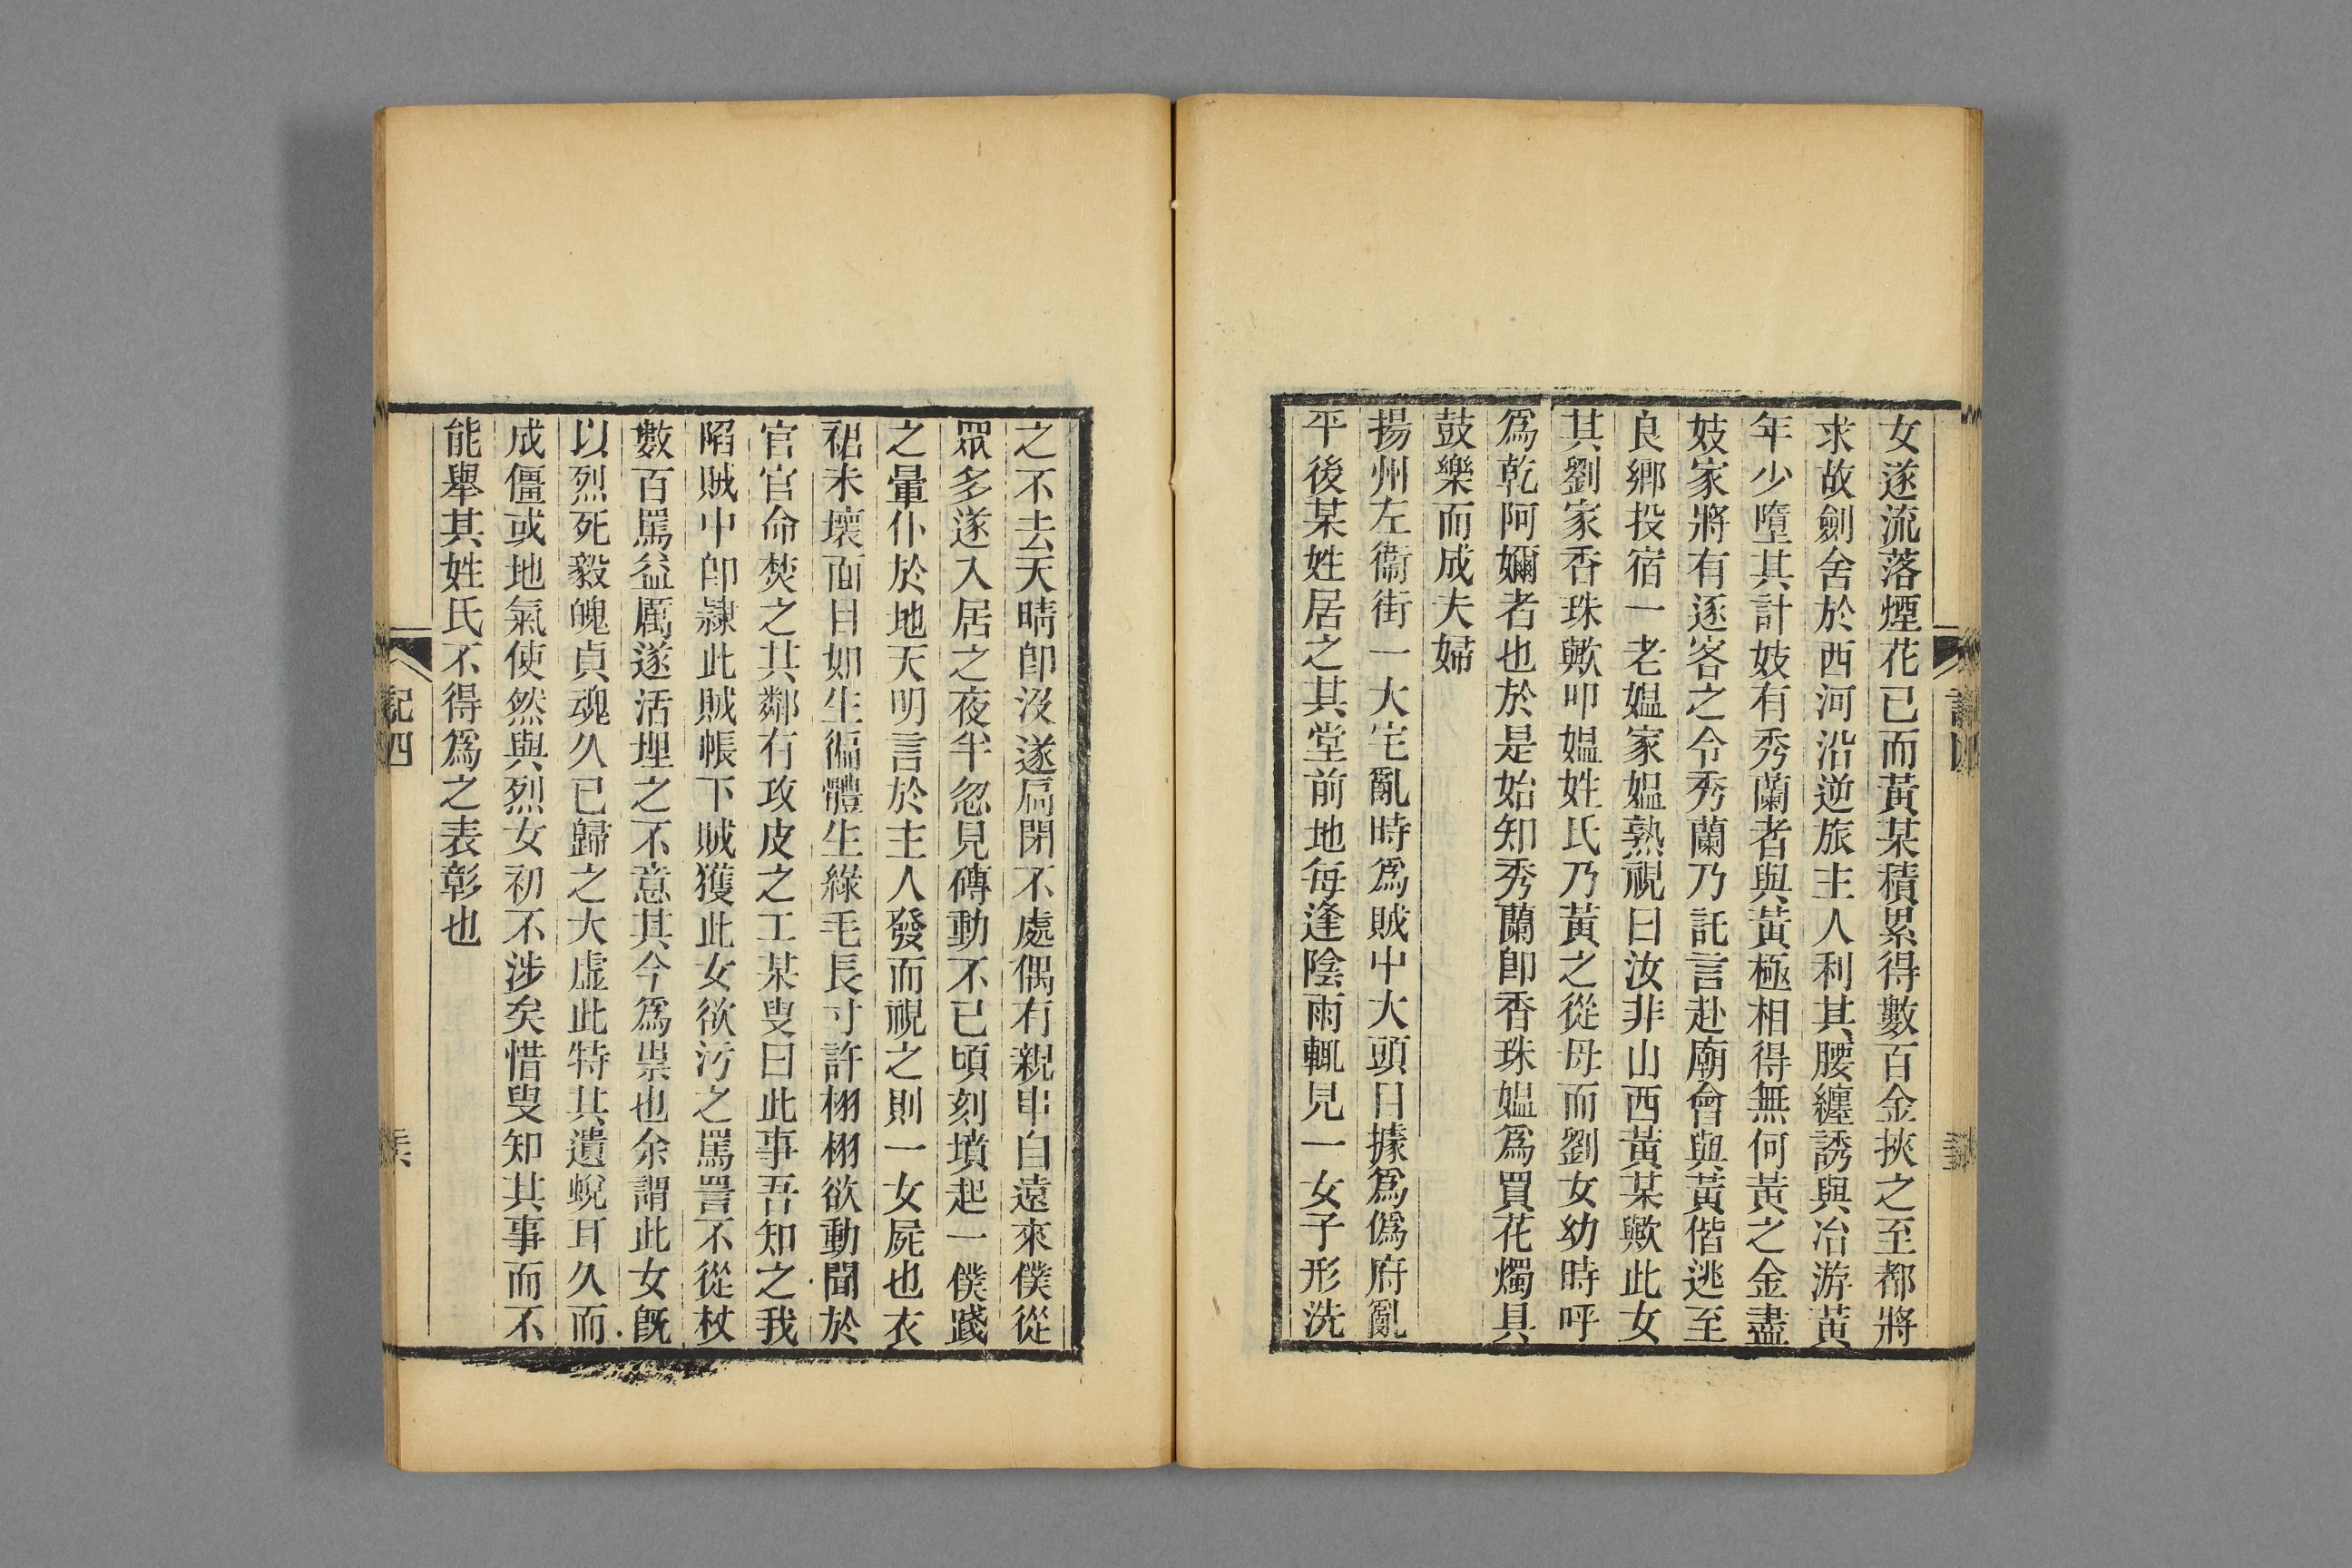 女遂流落煙花已而黃某積累得數百金挾之至都將
求故劍舍於西河沿逆旅主人利其腰纏誘與冶游黃
年少墮其計妓有秀蘭者與黃極相得無何黃之金盡
妓家將有逐客之令秀蘭乃託言赴廟會與黃偕逃至
良鄉投宿一老媼家媼熟視曰汝非山西黃某歟此女
其劉家香珠歟叩媼姓氏乃黃之從母而劉女幼時呼
爲乾阿嬭者也於是始知秀蘭卽香珠媼爲買花燭具
鼓樂而成夫婦
揚州左衞街一大宅亂時爲賊中大頭目據爲僞府亂
平後某姓居之其堂前地每逢陰雨輒見一女子形洗
之不去天晴卽沒遂扃閉不處偶有親串自遠來僕從
眾多遂入居之夜半忽見磚動不已頃刻墳起一僕踐
之暈仆於地天明言於主人發而視之則一女屍也衣
裙未壞面目如生徧體生綠毛長寸許栩栩欲動聞於
官官命焚之其鄰有攻皮之工某叟曰此事吾知之我
陷賊中卽隸此賊帳下賊獲此女欲污之罵詈不從杖
數百罵益厲遂活埋之不意其今爲祟也余謂此女旣
以烈死毅魄貞魂久已歸之大虛此特其遺蛻耳久而
成僵或地氣使然與烈女初不涉矣惜叟知其事而不
能舉其姓氏不得爲之表彰也
記四